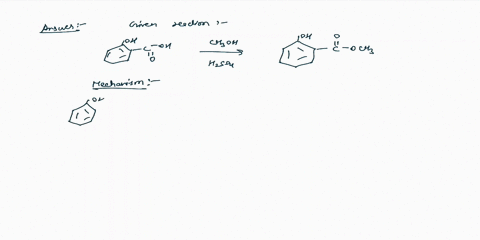 Answer:- Given reaction:-
OH
C - OH
O
CH3OH
H2SO4
OH
O
C - OCH3
Mechanism:-
OH